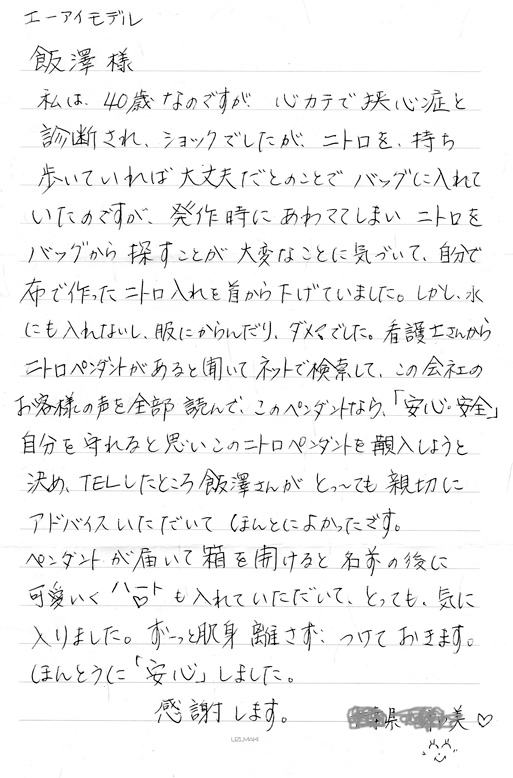 エーアイモデル
飯澤様
私は、40歳なのですが 心カテで狭心症と
診断され、ショックでしたが、ニトロを、持ち
歩いていれば大丈夫だとのことでバッグに入れて
いたのですが、発作時にあわててしまいニトロを
バッグから探すことが大変なことに気づいて、自分で
布で作ったニトロ入れを首から下げていました。しかし、水
にも入れないし、服にからんだり、ダメでした。看護士さんから
ニトロペンダントがあると聞いてネットで検索して、この会社の
お客様の声を全部読んで、このペンダントなら、「安心・安全」
自分を守れると思いこのニトロペンダントを購入しようと
決め、TELしたところ飯澤さんがとっ〜ても親切に
アドバイスいただいてほんとによかったです。
ペンダントが届いて箱を開けると名前の後に
可愛いくハート♡も入れていただいて、とっても、気に
入りました。ずーっと肌身離さず、つけておきます。
ほんとうに「安心」しました。
感謝します。
県 美♡
LIZUMAKI